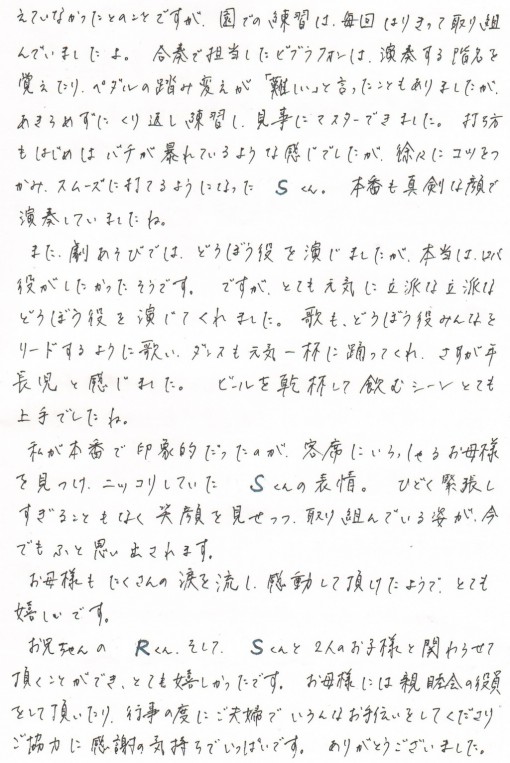 えていなかったとのことですが、園での練習は、毎回はりきって取り組
んでいましたよ。 合奏で担当したビブラフォンは、演奏する階名を
覚えたり、ペダルの踏み変えが「難しい」と言ったこともありましたが、
あきらめずにくり返し練習し、見事にマスターできました。 打ち方
もはじめはバチが暴れているような感じでしたが、徐々にコツをつ
かみ、スムーズに打てるようになった Sくん。 本番も真剣な顔で
演奏していましたね。
また、劇あそびでは、どろぼう役を演じましたが、本当は、ロバ
役がしたかったそうです。 ですが、とても元気に立派な立派な
どろぼう役を演じてくれました。 歌も、どろぼう役みんなを
リードするように歌い、ダンスも元気一杯に踊ってくれ、さすが年
長児と感じました。 ビールを乾杯して飲むシーンとても
上手でしたね。
私が本番で印象的だったのが、客席にいらっしゃるお母様
を見つけ、ニッコリしていた Sくんの表情。 ひどく緊張し
すぎることもなく笑顔を見せつつ、取り組んでいる姿が、今
でもふと思い出されます。
お母様もたくさんの涙を流し、感動して頂けたようで、とても
嬉しいです。
お兄ちゃんの Rくん、そして、 Sくんと2人のお子様と関わらせて
頂くことができ、とても嬉しかったです。 お母様には親睦会の役員
をして頂いたり、行事の度にご夫婦でいろんなお手伝いをしてくださり
ご協力に感謝の気持ちでいっぱいです。 ありがとうございました。